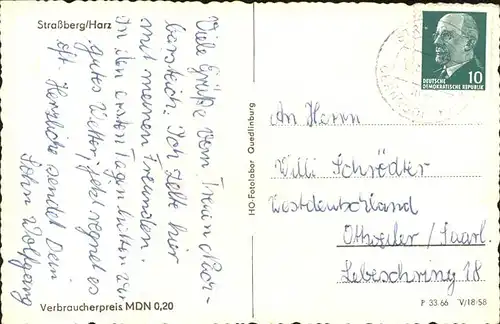 Straßberg/Harz
Viele Grüße vom Treuen Aus-
bärstich. Ich zelte hier
mit meinen Freunden.
In den ersten Tagen hatten wir
gutes Wetter, jetzt regnet es
oft. Herzliche sendet Dein
Sohn Wolfgang
Verbraucherpreis MDN 0,20
HO-Fotolabor Quedlinburg
10
DEUTSCHE
DEMOKRATISCHE REPUBLIK
An Herrn
Willi Schrödter
Westdeutschland
Ottweiler / Saarl.
Lebeschring 18
P 33.66 V/18-58